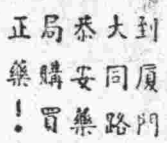 到厦門
大同路
恭安藥
局購買
正藥!